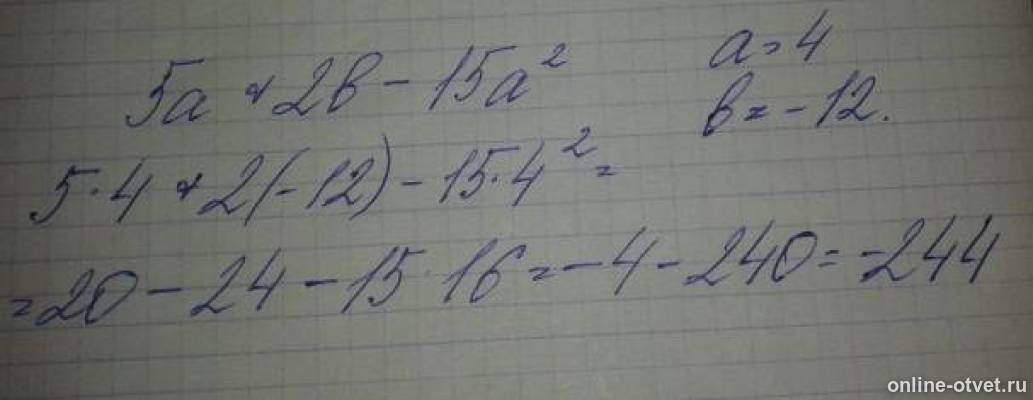 5a + 2b - 15a² a = 4
b = -12.
5·4 + 2(-12) - 15·4² =
= 20 - 24 - 15·16 = -4 - 240 = -244
online-otvet.ru